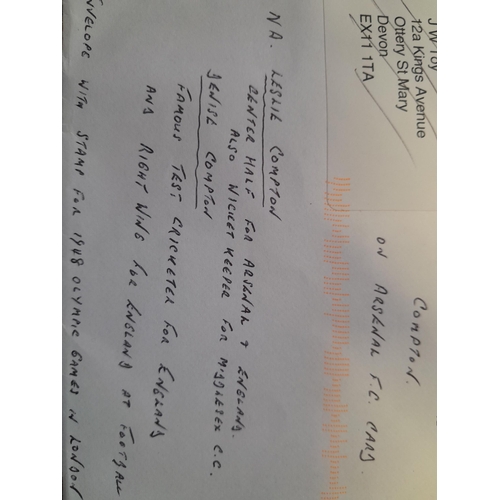 J W Toy
12a Kings Avenue
Ottery St Mary
Devon
EX11 1TA
COMPTON.
ON ARSENAL F.C. CARD.
N A. LESLIE COMPTON
CENTER HALF FOR ARSENAL & ENGLAND.
ALSO WICKET KEEPER FOR MIDDLESEX C.C.
DENISE COMPTON
FAMOUS TEST CRICKETER FOR ENGLAND
AND RIGHT WING FOR ENGLAND AT FOOTBALL
ENVELOPE WITH STAMP FOR 1948 OLYMPIC GAMES IN LONDON